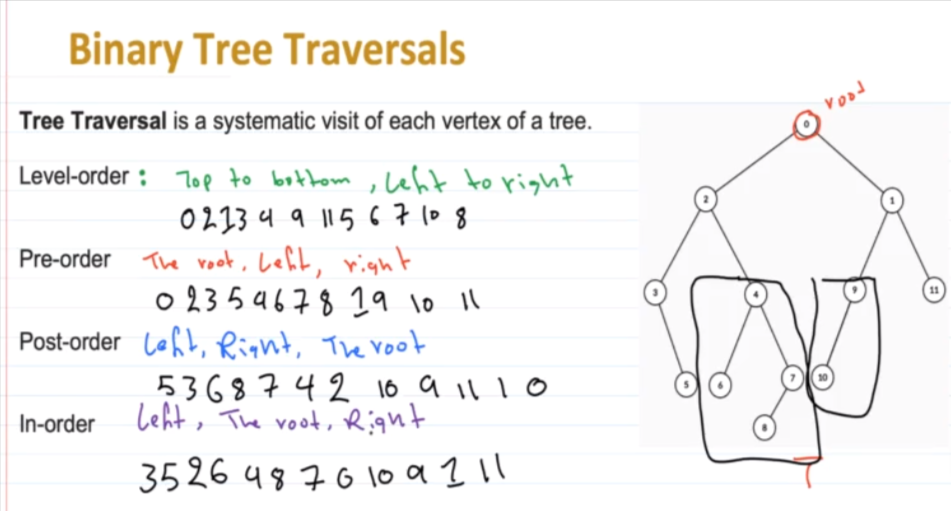 Binary Tree Traversals
Tree Traversal is a systematic visit of each vertex of a tree.
Level-order : Top to bottom , Left to right
0 2 1 3 4 9 11 5 6 7 10 8
Pre-order The root, Left, right
0 2 3 5 4 6 7 8 1 9 10 11
Post-order Left, Right, The root
5 3 6 8 7 4 2 10 9 11 1 0
In-order Left, The root, Right
3 5 2 6 4 8 7 0 10 9 1 11
root
0
2 1
3 4 9 11
5 6 7 10
8